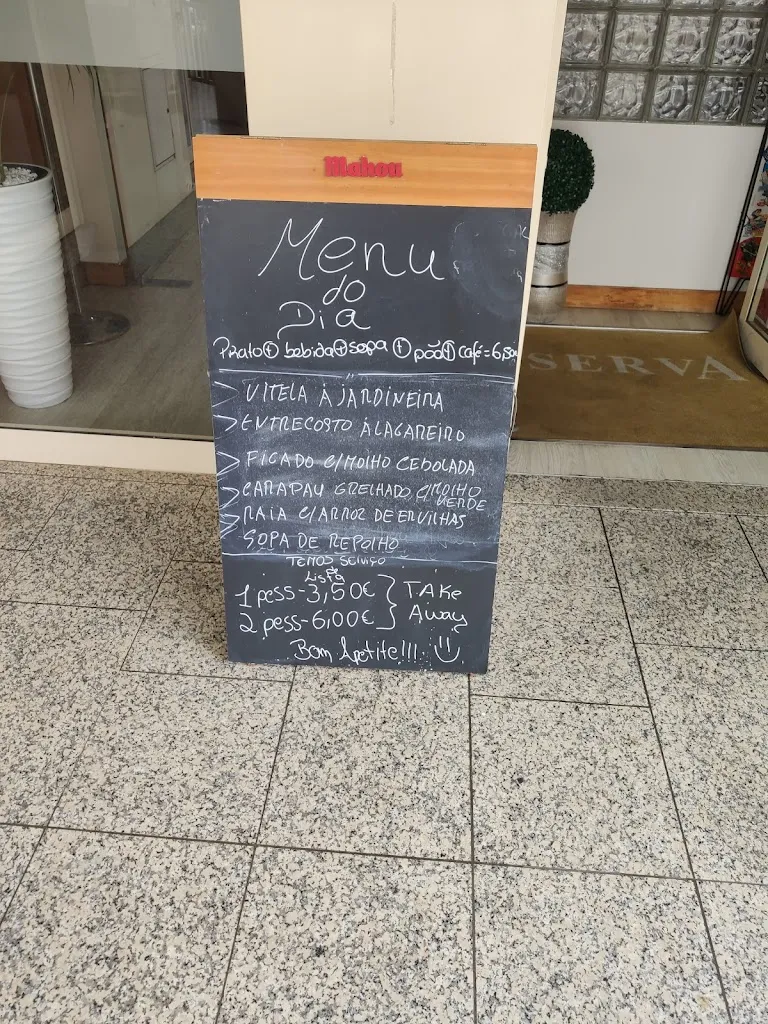 Mahou
Menu
do
Dia
Prato + bebida + sopa + pão + café = 6,50
> VITELA À JARDINEIRA
> ENTRECOSTO À LAGAREIRO
> FIGADO C/MOLHO CEBOLADA
> CARAPAU GRELHADO C/MOLHO
VERDE
> RAIA C/ARROZ DE ERVILHAS
> SOPA DE REPOLHO
TEMOS SERVIÇO
de
Lista
1 pess-3,50€ } TAKE
2 pess-6,00€ } Away
Bom Apetite!!!
SERVA